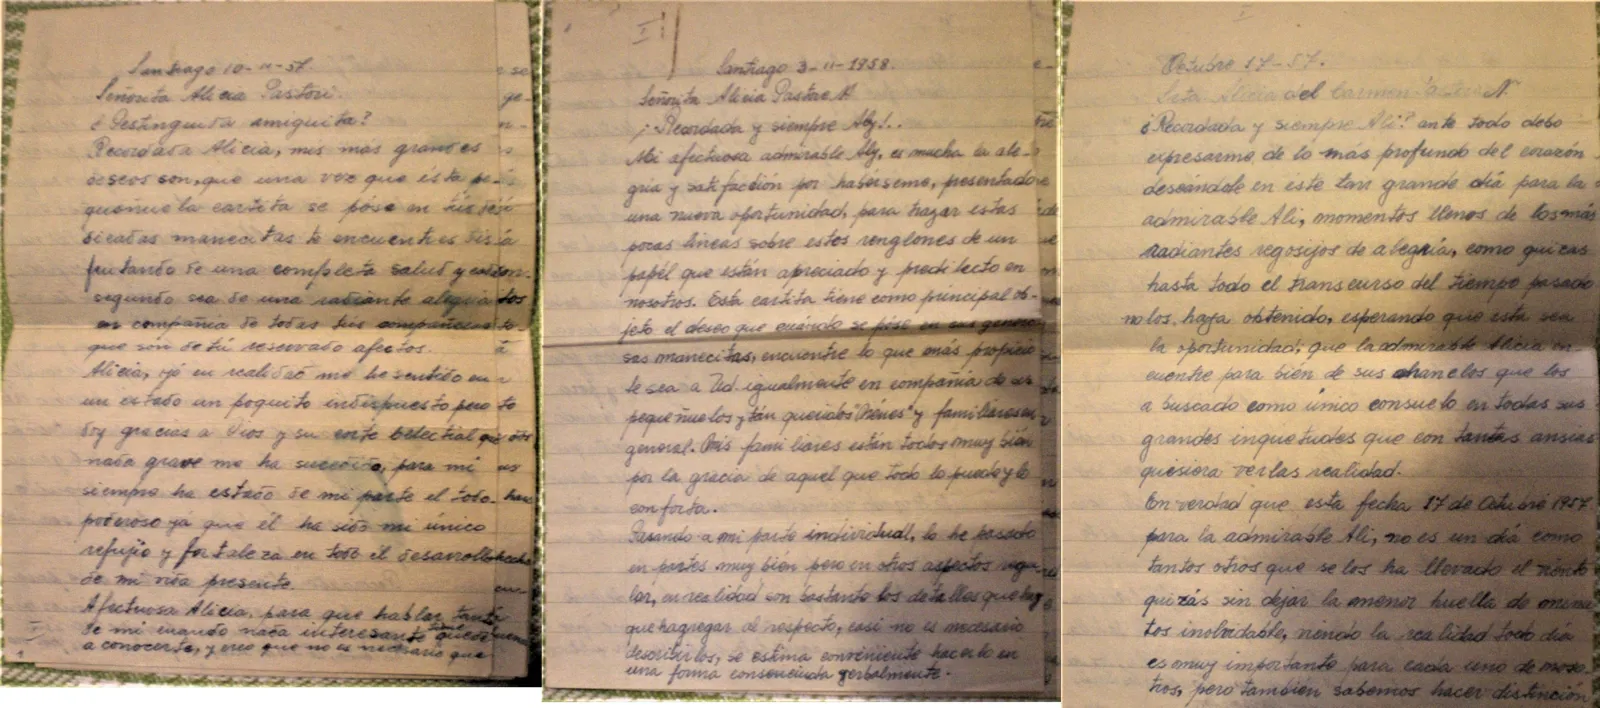 Santiago 10-11-57.
Señorita Alicia Pastori.
¿Destinguida amiguita?
Recordada Alicia, mis mas grandes
deseos son, que una vez que ésta pe-
queñuela cartita se póse en tús
manecitas te encuentres dis-
frutando de una completa salud y
segundo sea de una radiante alegria
en compañia de todas tús compañeras
que són de tú reservado afectos.
Alicia, yá en realidad me he sentido en
un estado un poquito indispuesto pero
doy gracias a Dios y su corte que
nada grave me ha sucedido, para mi
siempre ha estado de mi parte el todo-
poderoso yá que él ha sido mi único
refujio y fortaleza en todo él desarrollo
de mi vida presente.
Afectuosa Alicia, para que hablar tanto
de mi cuando nada interesante
a conocerte, y creo que no es necesario que
I
I
Santiago 3-11-1958.
Señorita Alicia Pastore N
¡Recordada y siempre Aly!..
Mi afectuosa admirable Aly, es mucha la ale-
gria y satisfacción por habérseme, presentado
una nueva oportunidad, para trazar estas
pocas lineas sobre estos renglones de un
papél que están apreciado y predilecto en
nosotros. Esta cartita tiene como principal ob-
jeto el deseo que cuándo se póse en sus genero-
sas manecitas, encuentre lo que más propicio
te sea a Ud. igualmente en compañia de sus
pequeñuelos y tán queridos "Nénes" y familiares en
general. Mis familiares están todos muy bién
por la gracia de aquel que todo lo puede y lo
conforta.
Pasando a mi parte individual, lo he pasado
en partes muy bién pero en otros aspectos regu-
lar, en realidad son bastante los detalles que hay
que hagregar al respecto, casi no es necesario
describirlos, se estima conveniente hacerlo en
una forma verbalmente.
I
Octubre 17-57.
Srta Alicia del Carmen N.
¿Recordada y siempre Ali? ante todo debo
expresarme de lo más profundo del corazón
deseándole en éste tan grande día para la
admirable Ali, momentos llenos de los más
radiantes regosijos de alegría, como quizas
hasta todo el transcurso del tiempo pasado
no los haya obtenido, esperando que esta sea
la oportunidad, que la admirable Alicia en-
cuentre para bién de sus anhelos que los
a buscado como único consuelo en todas sus
grandes inquetudes que con tantas ansias
quisiera verlas realidad.
En verdad que esta fecha 17 de Octubre 1957
para la admirable Ali, no es un diá como
tantos otros que se los ha llevado el viento
quizás sin dejar la menor huella de
tos inolvidable, viendo la realidad todo día
es muy importante para cada uno de noso-
tros, pero también sabemos hacer distinción